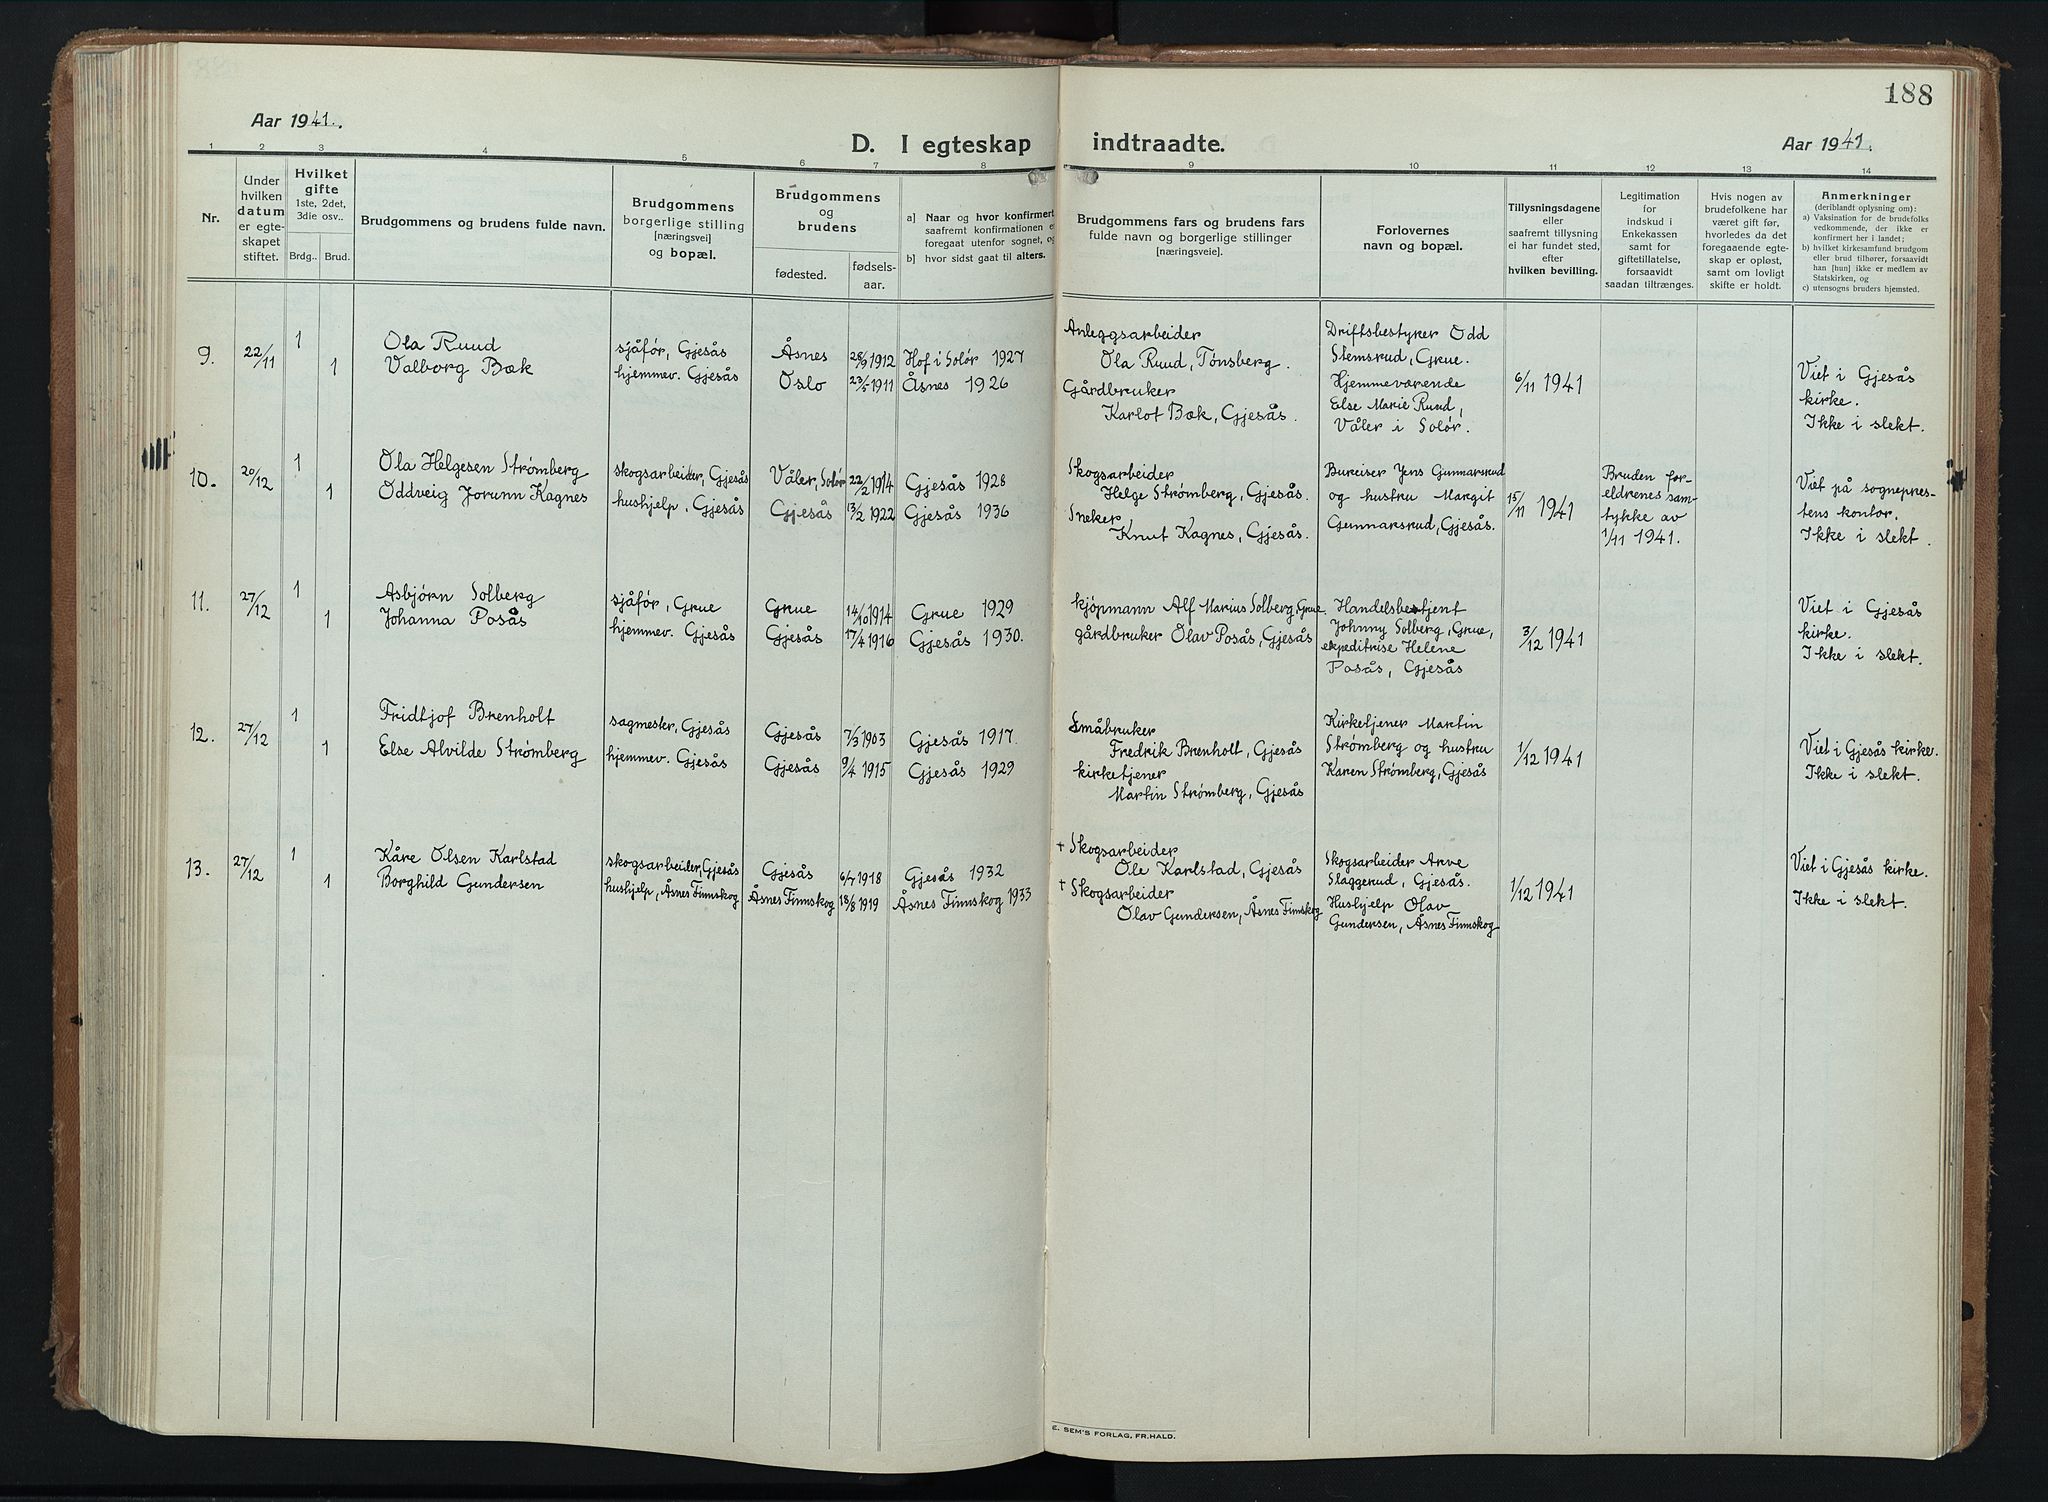 188
Aar 1941.
D. I egteskap indtraadte.
Aar 1941.
1 2 3 4 5 6 7 8 9 10 11 12 13 14
Nr.
Under hvilken datum er egte-skapet stiftet.
Hvilket gifte 1ste, 2det, 3die osv..
Brdg.. Brud.
Brudgommens og brudens fulde navn.
Brudgommens borgerlige stilling [næringsvei] og bopæl.
Brudgommens og brudens
fødested. fødsels-aar.
a] Naar og hvor konfirmert
saafremt konfirmationen
foregaat utenfor sognet, og
b] hvor sidst gaat til alters.
Brudgommens fars og brudens fars
fulde navn og borgerlige stillinger
[næringsveie].
Forlovernes
navn og bopæl.
Tillysningsdagene
eller
saafremt tillysning
ei har fundet sted,
efter
hvilken bevilling.
Legitimation
for
indskud i
Enkekassen
samt for
giftetillatelse,
forsaavidt
saadan tiltrænges.
Hvis nogen av
brudefolkene har
været gift før,
hvorledes da det
foregaaende egte-
skap er opløst,
samt om lovligt
skifte er holdt.
Anmerkninger
(deriblandt oplysning om):
a) Vaksination for de brudefolks
vedkommende, der ikke er
konfirmert her i landet;
b) hvilket kirkesamfund brudgom
eller brud tilhører, forsaavidt
han [hun] ikke er medlem av
Statskirken, og
c) utensogns bruders hjemsted.
9. 22/11 1
1
Ola Ruud
Valborg Bæk
sjåfør, Gjesås
hjemmev. Gjesås
Åsnes 28/9 1912 Hof i Solør 1927
Oslo 23/5 1911 Åsnes 1926
Anleggsarbeider
Ola Ruud, Tønsberg.
Gårdbruker
Karlot Bæk, Gjesås.
Driftsbestyrer Odd
Stemsrud, Grue.
Hjemmeværende
Else Marie Ruud,
Våler i Solør.
6/11 1941
Viet i Gjesås
kirke.
Ikke i slekt.
10. 20/12 1
1
Ola Helgesen Strømberg
Oddveig Jorunn Kagnes
skogsarbeider, Gjesås
hushjelp, Gjesås
Våler, Solør 22/2 1914 Gjesås 1928
Gjesås 13/2 1922 Gjesås 1936
Skogsarbeider
Helge Strømberg, Gjesås.
Sneker
Knut Kagnes, Gjesås.
Bureiser Jens Gunnarsrud
og hustru Margit
Gunnarsrud, Gjesås.
15/11 1941
Bruden for-
eldrenes sam-
tykke av
1/11 1941.
Viet på sognepres-
tens kontor.
Ikke i slekt.
11. 27/12 1
1
Asbjørn Solberg
Johanna Posås
sjåfør, Grue
hjemmev. Gjesås
Grue 14/10 1914 Grue 1929
Gjesås 17/4 1916 Gjesås 1930.
kjøpmann Alf Marius Solberg, Grue.
gårdbruker Olav Posås, Gjesås
Handelsbetjent
Johnny Solberg, Grue,
ekspeditrise Helene
Posås, Gjesås
3/12 1941
Viet i Gjesås
kirke.
Ikke i slekt.
12. 27/12 1
1
Fridtjof Brenholt
Else Alvilde Strømberg
sagmester, Gjesås
hjemmev. Gjesås
Gjesås 7/3 1903 Gjesås 1917.
Gjesås 9/4 1915 Gjesås 1929
Småbruker
Fredrik Brenholt, Gjesås
kirketjener
Martin Strømberg, Gjesås
Kirketjener Martin
Strømberg og hustru
Karen Strømberg, Gjesås
1/12 1941
Viet i Gjesås kirke.
Ikke i slekt.
13. 27/12 1
1
Kåre Olsen Karlstad
Borghild Gundersen
skogsarbeider, Gjesås
hushjelp, Åsnes Finnskog
Gjesås 6/7 1918 Gjesås 1932
Åsnes Finnskog 18/8 1919 Åsnes Finnskog 1933
+ Skogsarbeider
Ole Karlstad, Gjesås
+ Skogsarbeider
Olav Gundersen, Åsnes Finnskog
Skogsarbeider Arve
Slaggerud, Gjesås.
Hushjelp Olav
Gundersen, Åsnes Finnskog
1/12 1941
Viet i Gjesås kirke.
Ikke i slekt.
E. SEM'S FORLAG, FR.HALD.